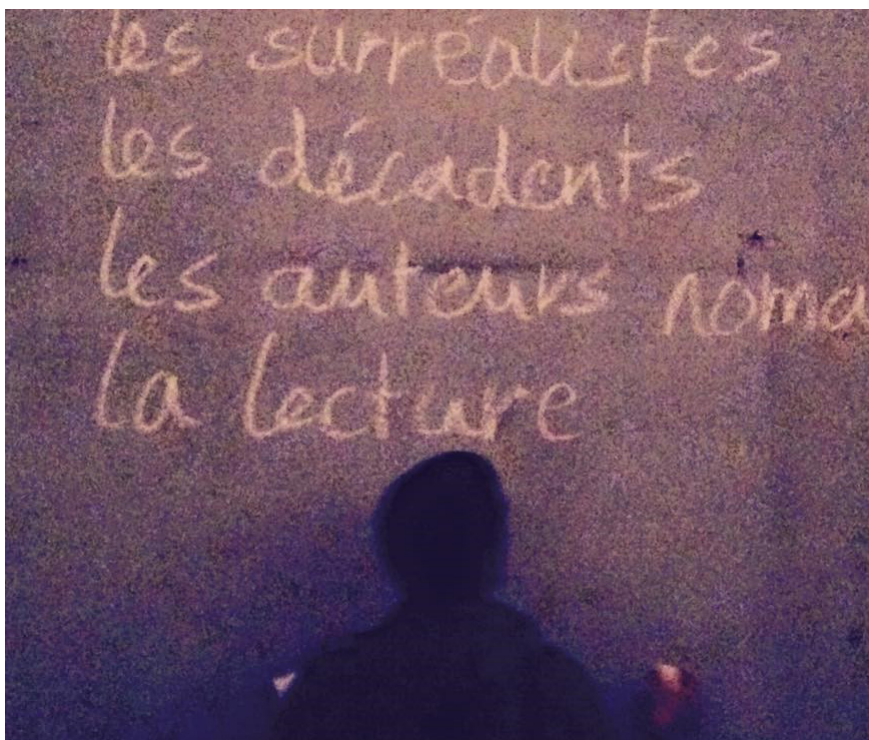 les surréalistes
les décadents
les auteurs noma
la lecture